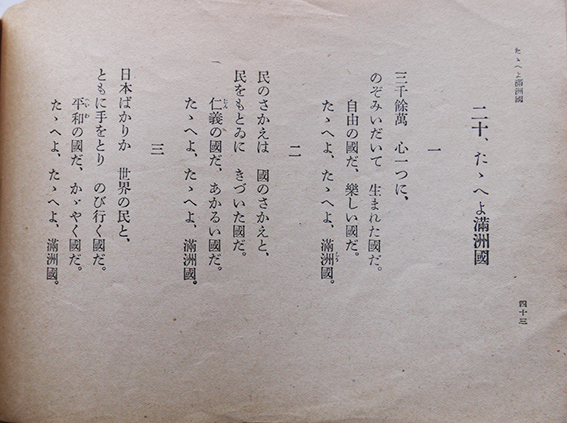 たゝへよ滿洲國
四十三
二十、たゝへよ滿洲國
一
三千餘萬　心一つに、
のぞみいだいて　生まれた國だ。
自由の國だ、樂しい國だ。
たゝへよ、たゝへよ、滿洲國。
二
民のさかえは　國のさかえと、
民をもとゐに　きづいた國だ。
仁義の國だ、あかるい國だ。
たゝへよ、たゝへよ、滿洲國。
三
日本ばかりか　世界の民と、
ともに手をとり　のび行く國だ。
平和の國だ、かゞやく國だ。
たゝへよ、たゝへよ、滿洲國。